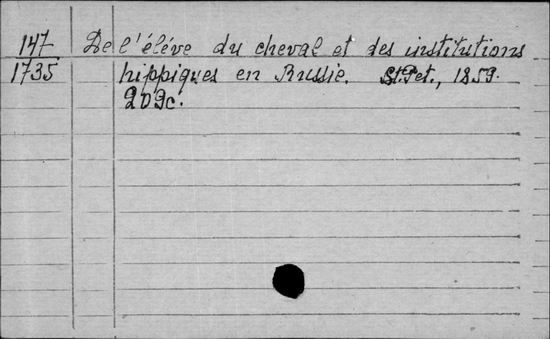 147 De l'éléve du cheval et des institutions
1735 hippiques en Russie. St.Pet., 1859.
202c.